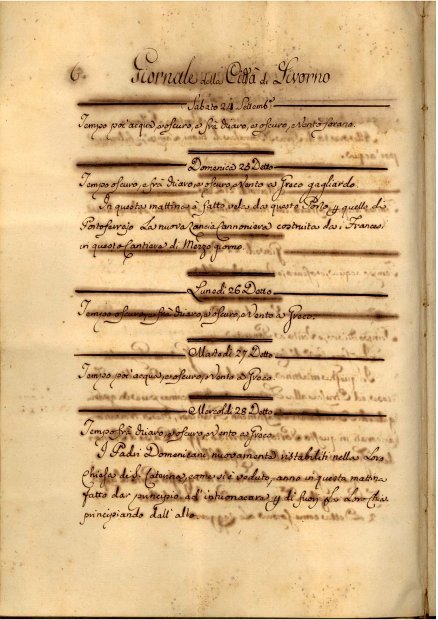 6. Giornale della Città di Livorno
Sabato 24 Settemb.e
Tempo poc'acqua, e oscuro, e frà chiaro, e oscuro, e Vento
Domenica 25 Detto
Tempo oscuro, e frà chiaro, e oscuro, e Vento a Greco gagliardo.
In questa mattina à fatto vela da questo Porto, p quello di
Portoferrajo La nuova Lancia Cannoniera costruita da i Francesi
in questo Cantiere di Mezzo giorno.
Lunedì 26 Detto
Tempo oscuro, e frà chiaro, e oscuro, e Vento a Greco.
Martedì 27 Detto
Tempo poc'acqua, e oscuro, e Vento a Greco.
Mercoldì 28 Detto
Tempo frà chiaro, e oscuro, e Vento a Greco.
I Padri Domenicani nuovamente ristabiliti nella Loro
Chiesa di S. Caterina, come si è veduto, anno in questa mattina
fatto dar principio ad' intionacara p di fuori
principiando dall' alto.